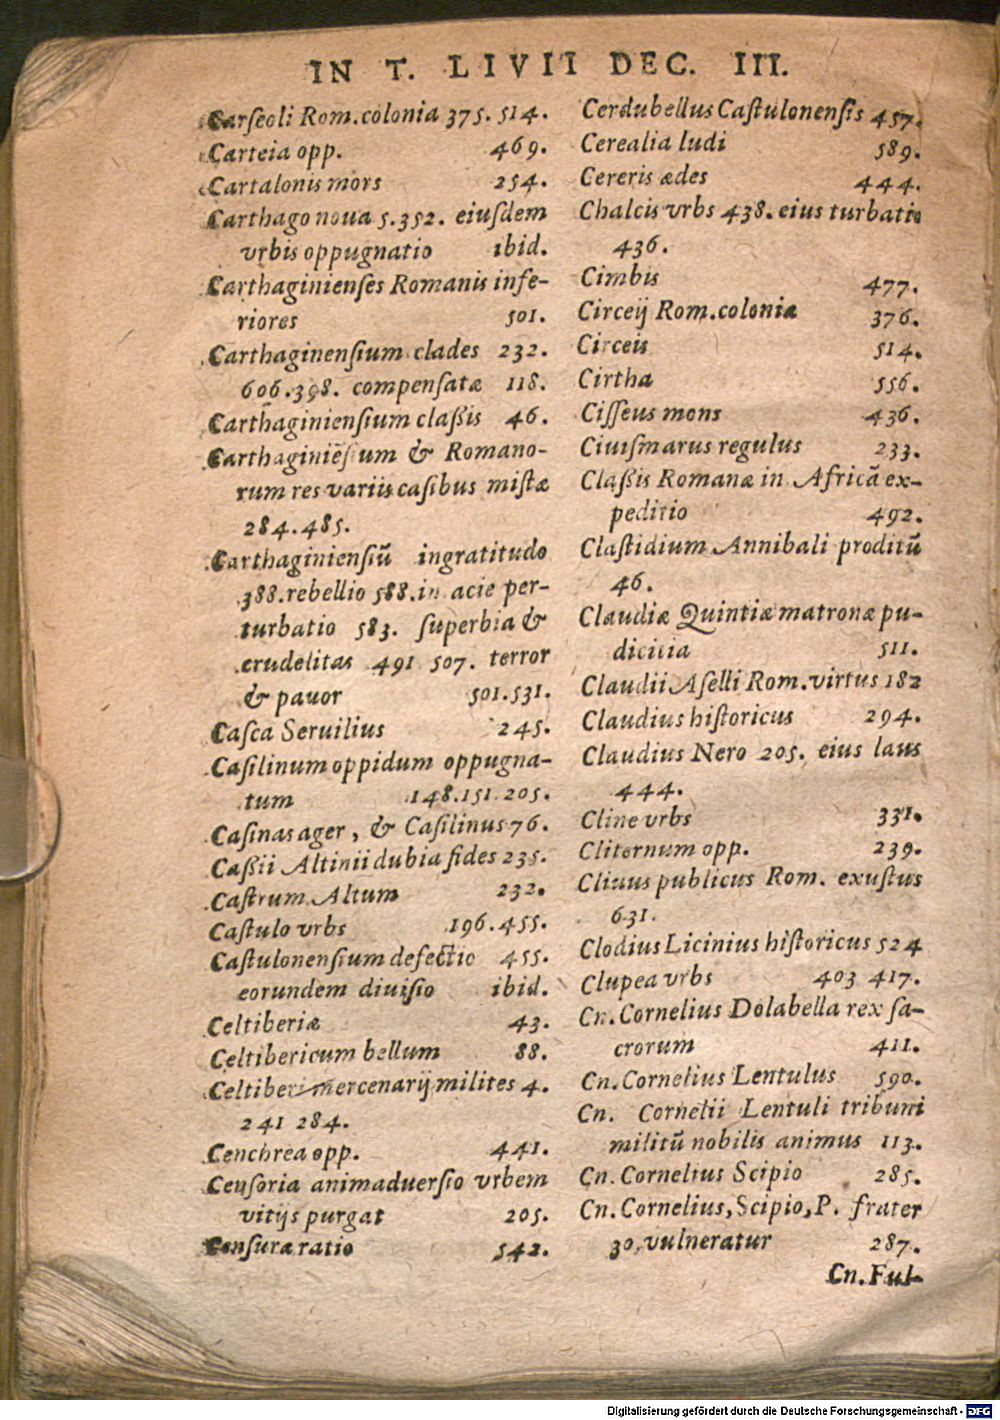 IN T. LIVII DEC. III.
Carseoli Rom. colonia 375. 514.
Carteia opp. 469.
Cartalonis mors 254.
Carthago noua 5. 352. eiusdem
vrbis oppugnatio ibid.
Carthaginienses Romanis infe-
riores 501.
Carthaginensium clades 232.
606. 398. compensatæ 118.
Carthaginiensium classis 46.
Carthaginiēsium & Romano-
rum res variis casibus mistæ
284. 485.
Carthaginiensiū ingratitudo
388. rebellio 588. in acie per-
turbatio 583. superbia &
crudelitas 491 507. terror
& pauor 501. 531.
Casca Seruilius 245.
Casilinum oppidum oppugna-
tum 148. 151. 205.
Casinas ager, & Casilinus 76.
Cassii Altinii dubia fides 235.
Castrum Altum 232.
Castulo vrbs 196. 455.
Castulonensium defectio 455.
eorundem diuisio ibid.
Celtiberiæ 43.
Celtibericum bellum 88.
Celtiberi mercenarij milites 4.
241 284.
Cenchrea opp. 441.
Censoria animaduersio vrbem
vitijs purgat 205.
Censuræ ratio 542.
Cerdubellus Castulonensis 457.
Cerealia ludi 589.
Cereris ædes 444.
Chalcis vrbs 438. eius turbatio
436.
Cimbis 477.
Circeij Rom. colonia 376.
Circeis 514.
Cirtha 556.
Cisseus mons 436.
Ciuismarus regulus 233.
Classis Romanæ in Africā ex-
peditio 492.
Clastidium Annibali proditū
46.
Claudiæ Quintiæ matronæ pu-
dicitia 511.
Claudii Aselli Rom. virtus 182
Claudius historicus 294.
Claudius Nero 205. eius laus
444.
Cline vrbs 331.
Cliternum opp. 239.
Cliuus publicus Rom. exustus
631.
Clodius Licinius historicus 524
Clupea vrbs 403 417.
Cn. Cornelius Dolabella rex sa-
crorum 411.
Cn. Cornelius Lentulus 590.
Cn. Cornelii Lentuli tribuni
militū nobilis animus 113.
Cn. Cornelius Scipio 285.
Cn. Cornelius, Scipio, P. frater
30. vulneratur 287.
Cn. Ful-
Digitalisierung gefördert durch die Deutsche Forschungsgemeinschaft - DFG